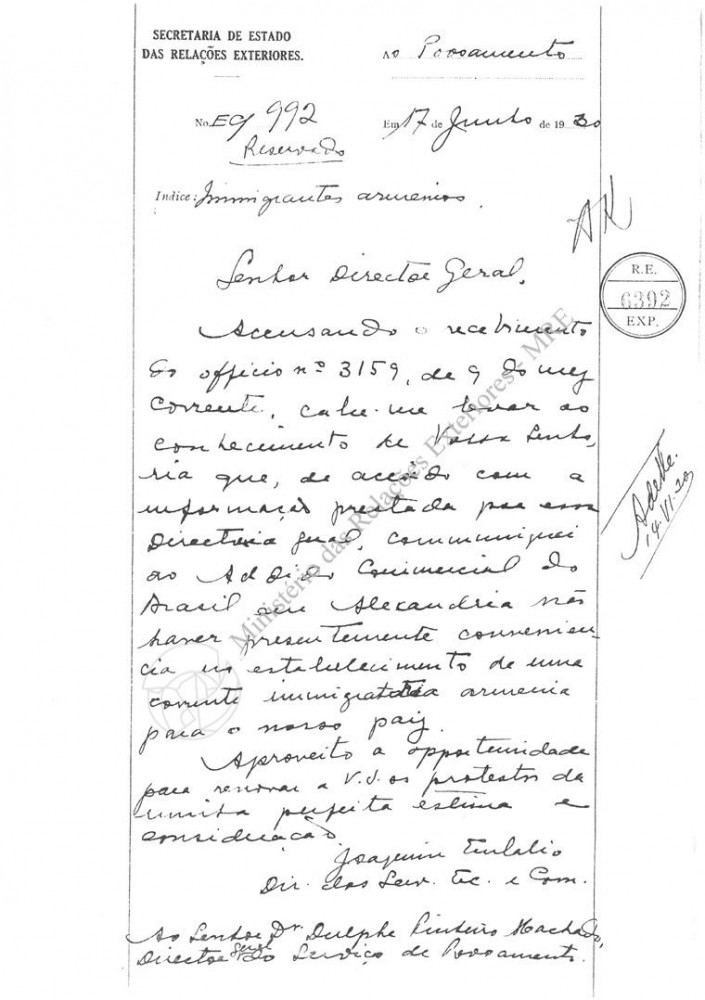 SECRETARIA DE ESTADO
DAS RELAÇÕES EXTERIORES.
Ao Povoamento
No. EC/ 992
Reservado
Em 17 de Junho de 1930
Indice: Immigrantes armenios.
AK
Senhor Director Geral,
R.E.
6392
EXP.
Accusando o recebimento
do officio nº 3159, de 9 do mez
corrente, cabe-me levar ao
conhecimento de Vossa Senho-
ria que, de accôrdo com a
informação prestada por essa
Directoria Geral, communiquei
ao Addido Commercial do
Brasil em Alexandria não
haver presentemente convenien-
cia no estabelecimento de uma
corrente immigratoria armenia
para o nosso paiz.
Aproveito a opportunidade
para renovar a V.S. os protestos da
minha perfeita estima e
consideração.
Joaquim Eulalio
Dir. dos Serv. Ec. e Com.
Ao Senhor Dr. Dulphe Pinheiro Machado,
Director Geral do Serviço de Povoamento.
14.VI.30
Ministério das Relações Exteriores - MRE